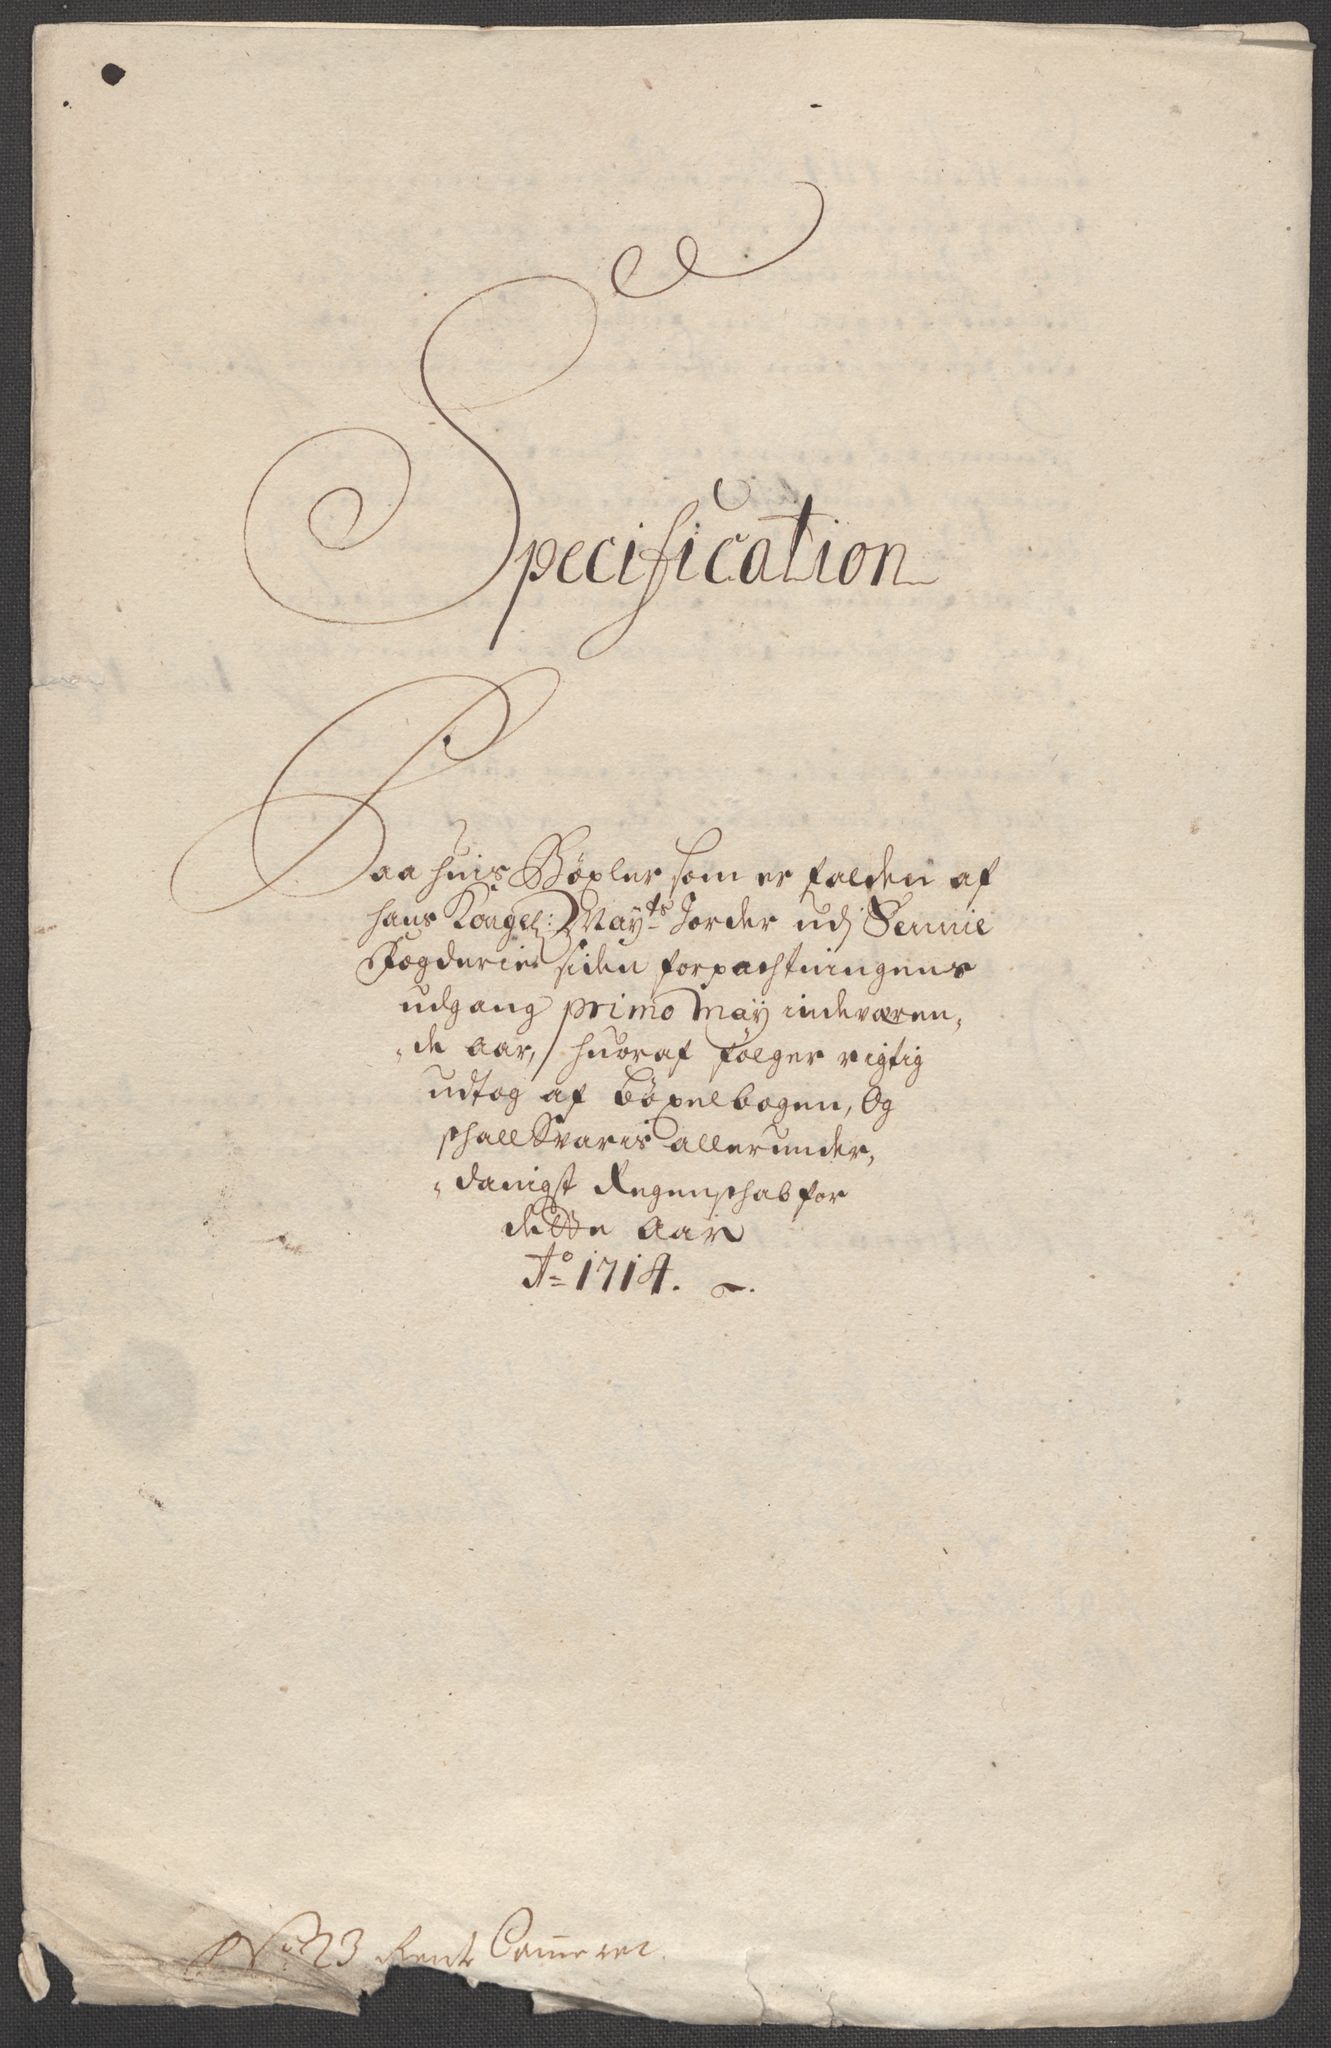 Specification
Paa huis Böxler som er falden af
hans Kongel: Mayts Jorder udj Sennie
Fogderie siden forpachtningens
udgang primo May indeværen,
,de aar, huoraf følger rigtig
udtog af böxelbogen, Og
schall Svaris allerunder,
,danigst Regenschab for
dette Aar
Ao 1714.
No: 23 Rente Cammeret.